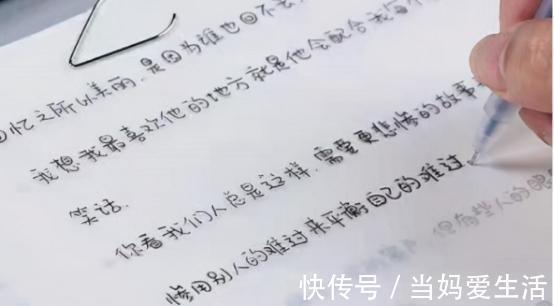 回忆之所以美丽.是因为谁也回不去
我想我最喜欢他的地方就是他会配合我每个
笑话.
你看我们人总是这样.需要更悲惨的故事
惨用别人的难过来平衡自己的难过.
但有些人的眼
快传号 / 当妈爱生活